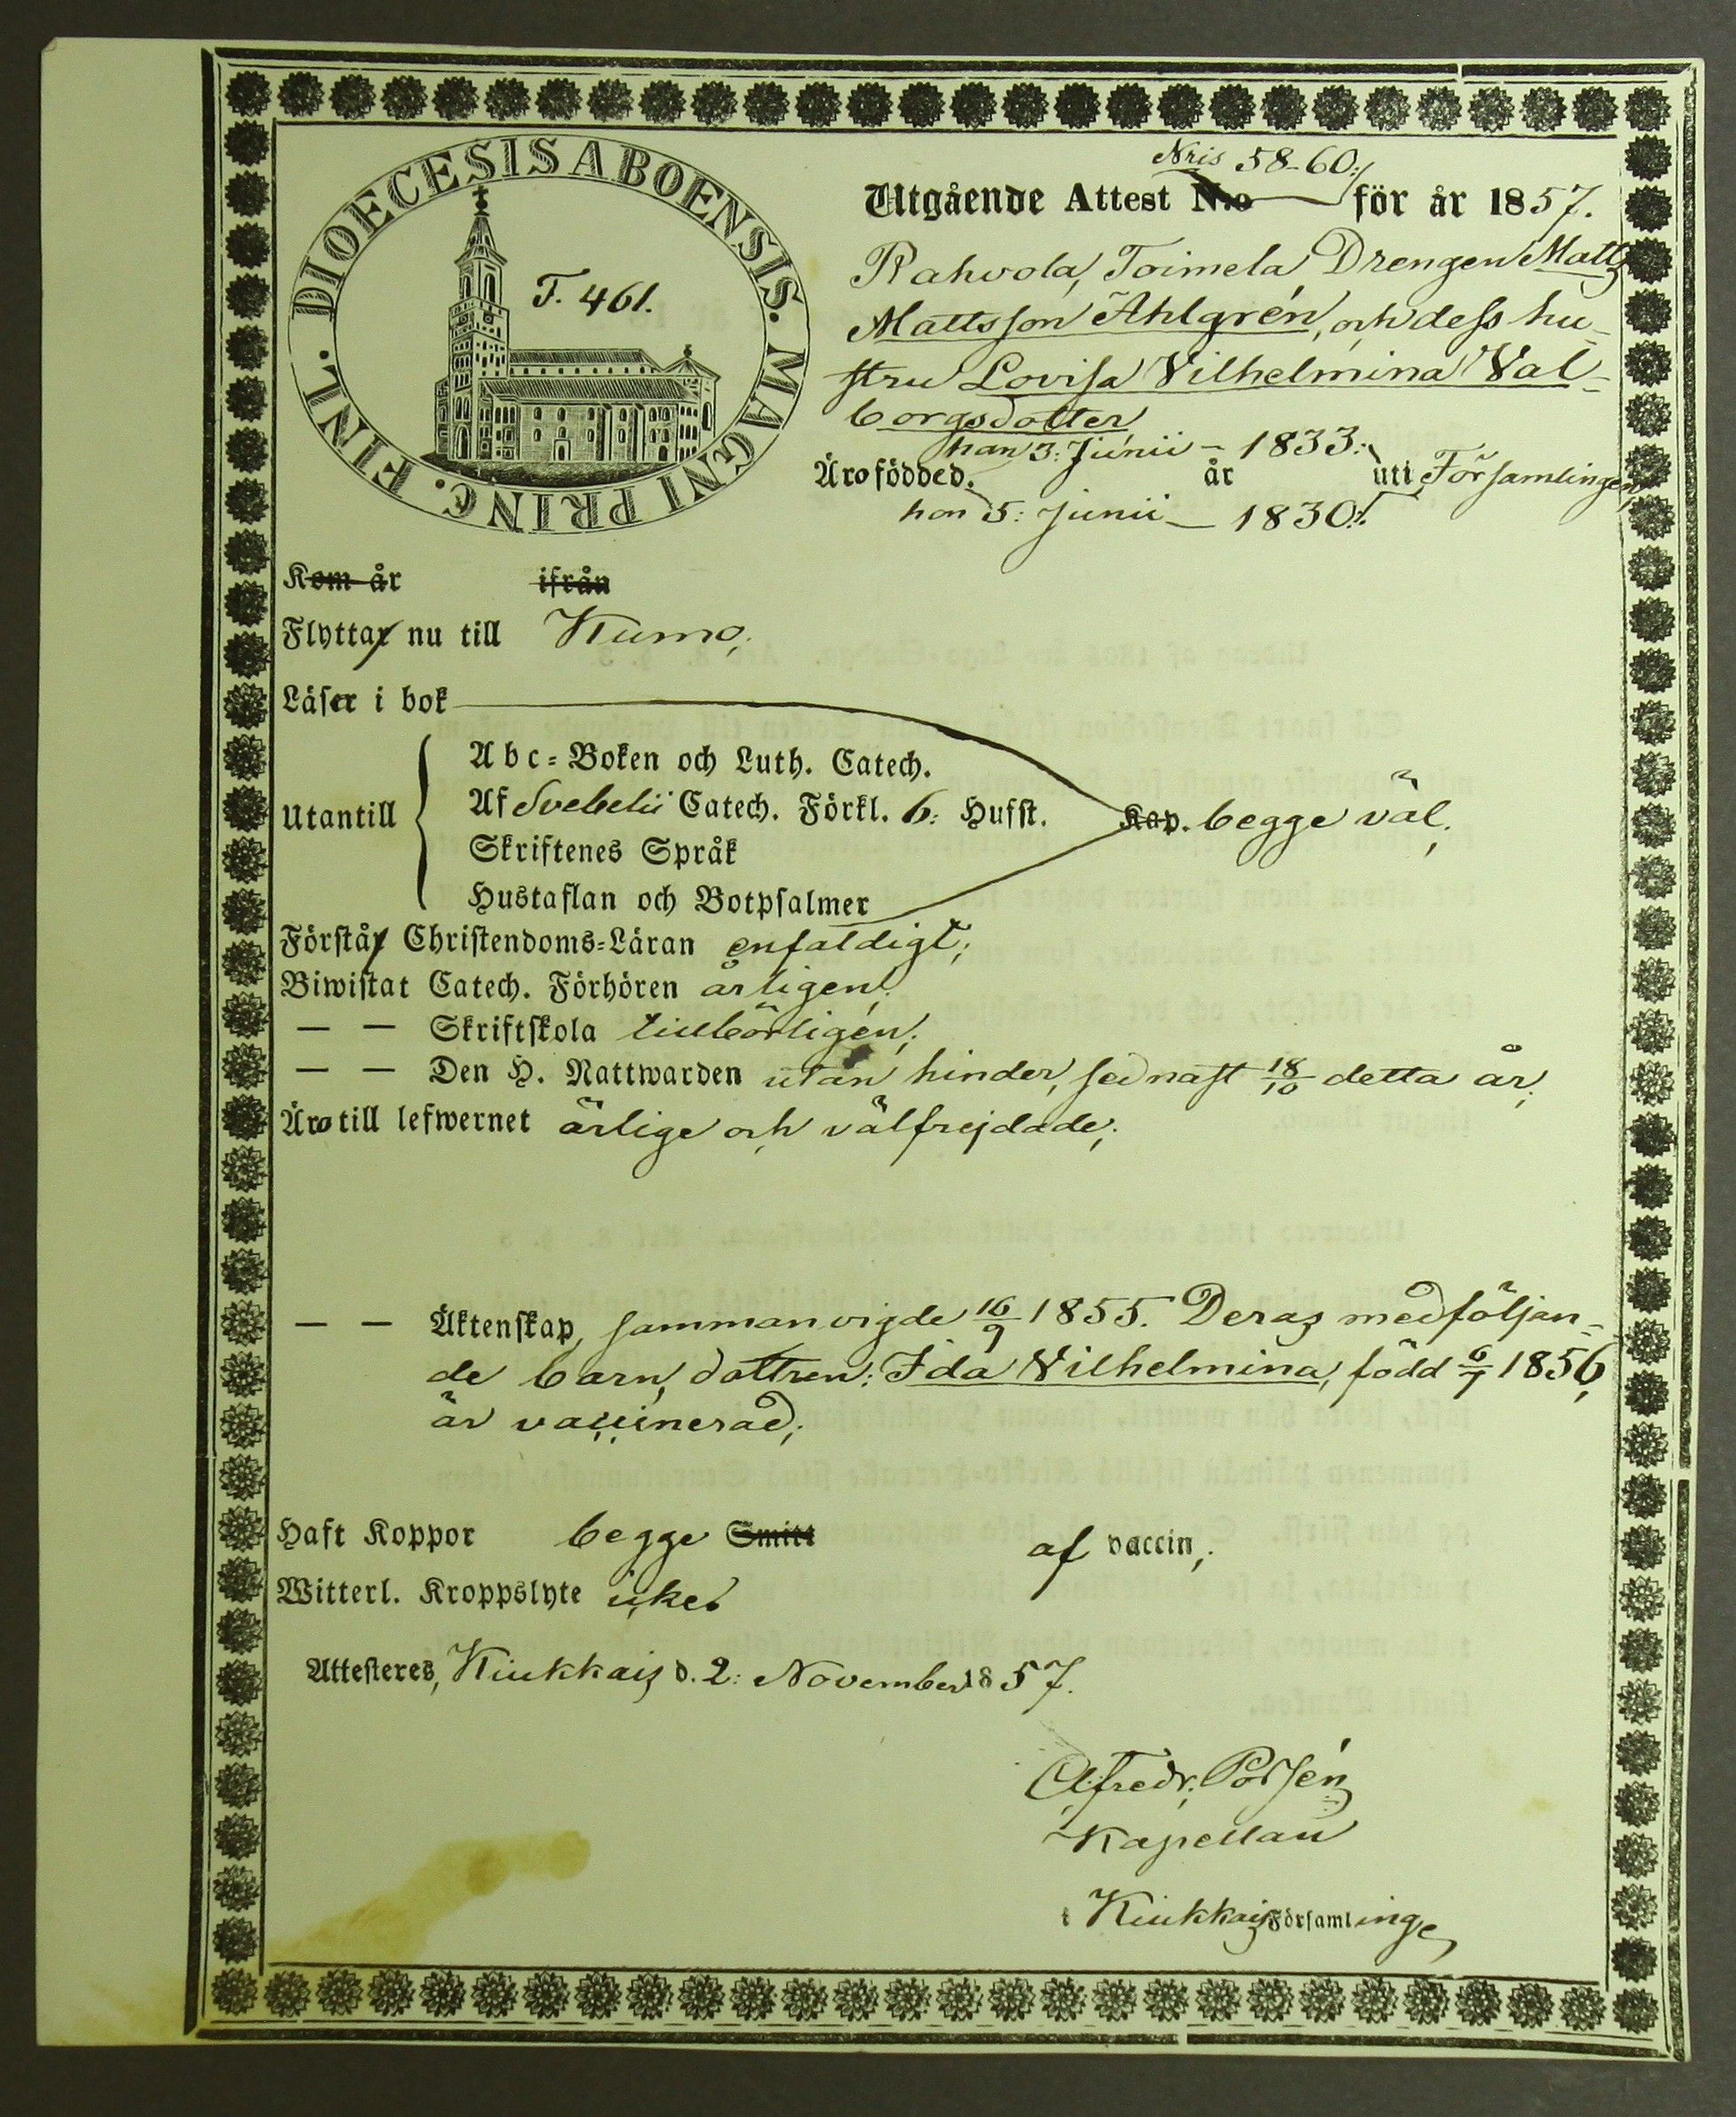 DIOECESIS ABOENSIS. MAGNI PRINC. FINL.
T. 461.
Nris 58-60:
Utgående Attest N:o för år 1857.
Rahvola, Toimela Drengen Matts
Mattsson Ahlgrén, och dess hu-
stru Lovisa Vilhelmina Val-
borgsdotter
han 3: Junii - 1833:
Äro födde d. år uti Församlingen,
hon 5: Junii - 1830:
Kom år ifrån
Flytta nu till Kumo;
Läser i bok
Utantill
Abc-Boken och Luth. Catech.
Af Svebelii Catech. Förkl. 6: Hufst. Kap. begge väl;
Skriftenes Språk
Hustaflan och Botpsalmer
Förstå Christendoms-Läran enfaldigt;
Biwistat Catech. Förhören årligen;
— — Skriftskola tillbörligen;
— — Den H. Nattwarden utan hinder, sednast 18/10 detta år;
Äro till lefwernet ärlige och välfrejdade;
— — Äktenskap, sammanvigde 16/9 1855. Deras medföljan-
de barn, dottren: Ida Vilhelmina, född 6/7 1856,
är vaccinerad;
Haft Koppor begge Smitt af vaccin;
Witterl. Kroppslyte icke.
Attesteres, Kiukkais d. 2: November 1857.
Alfredr. Porsén
Kapellan
i Kiukkais Församlinge